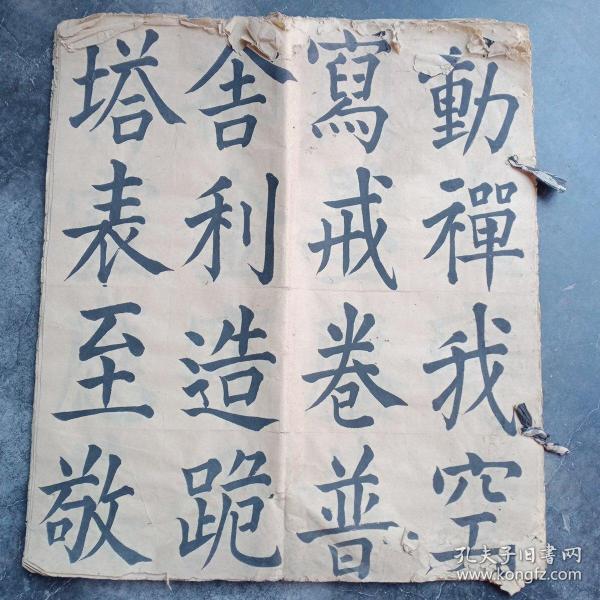 動禪我空
寫戒卷普
舍利造跪
塔表至敬
孔夫子旧书网
www.kongfz.com